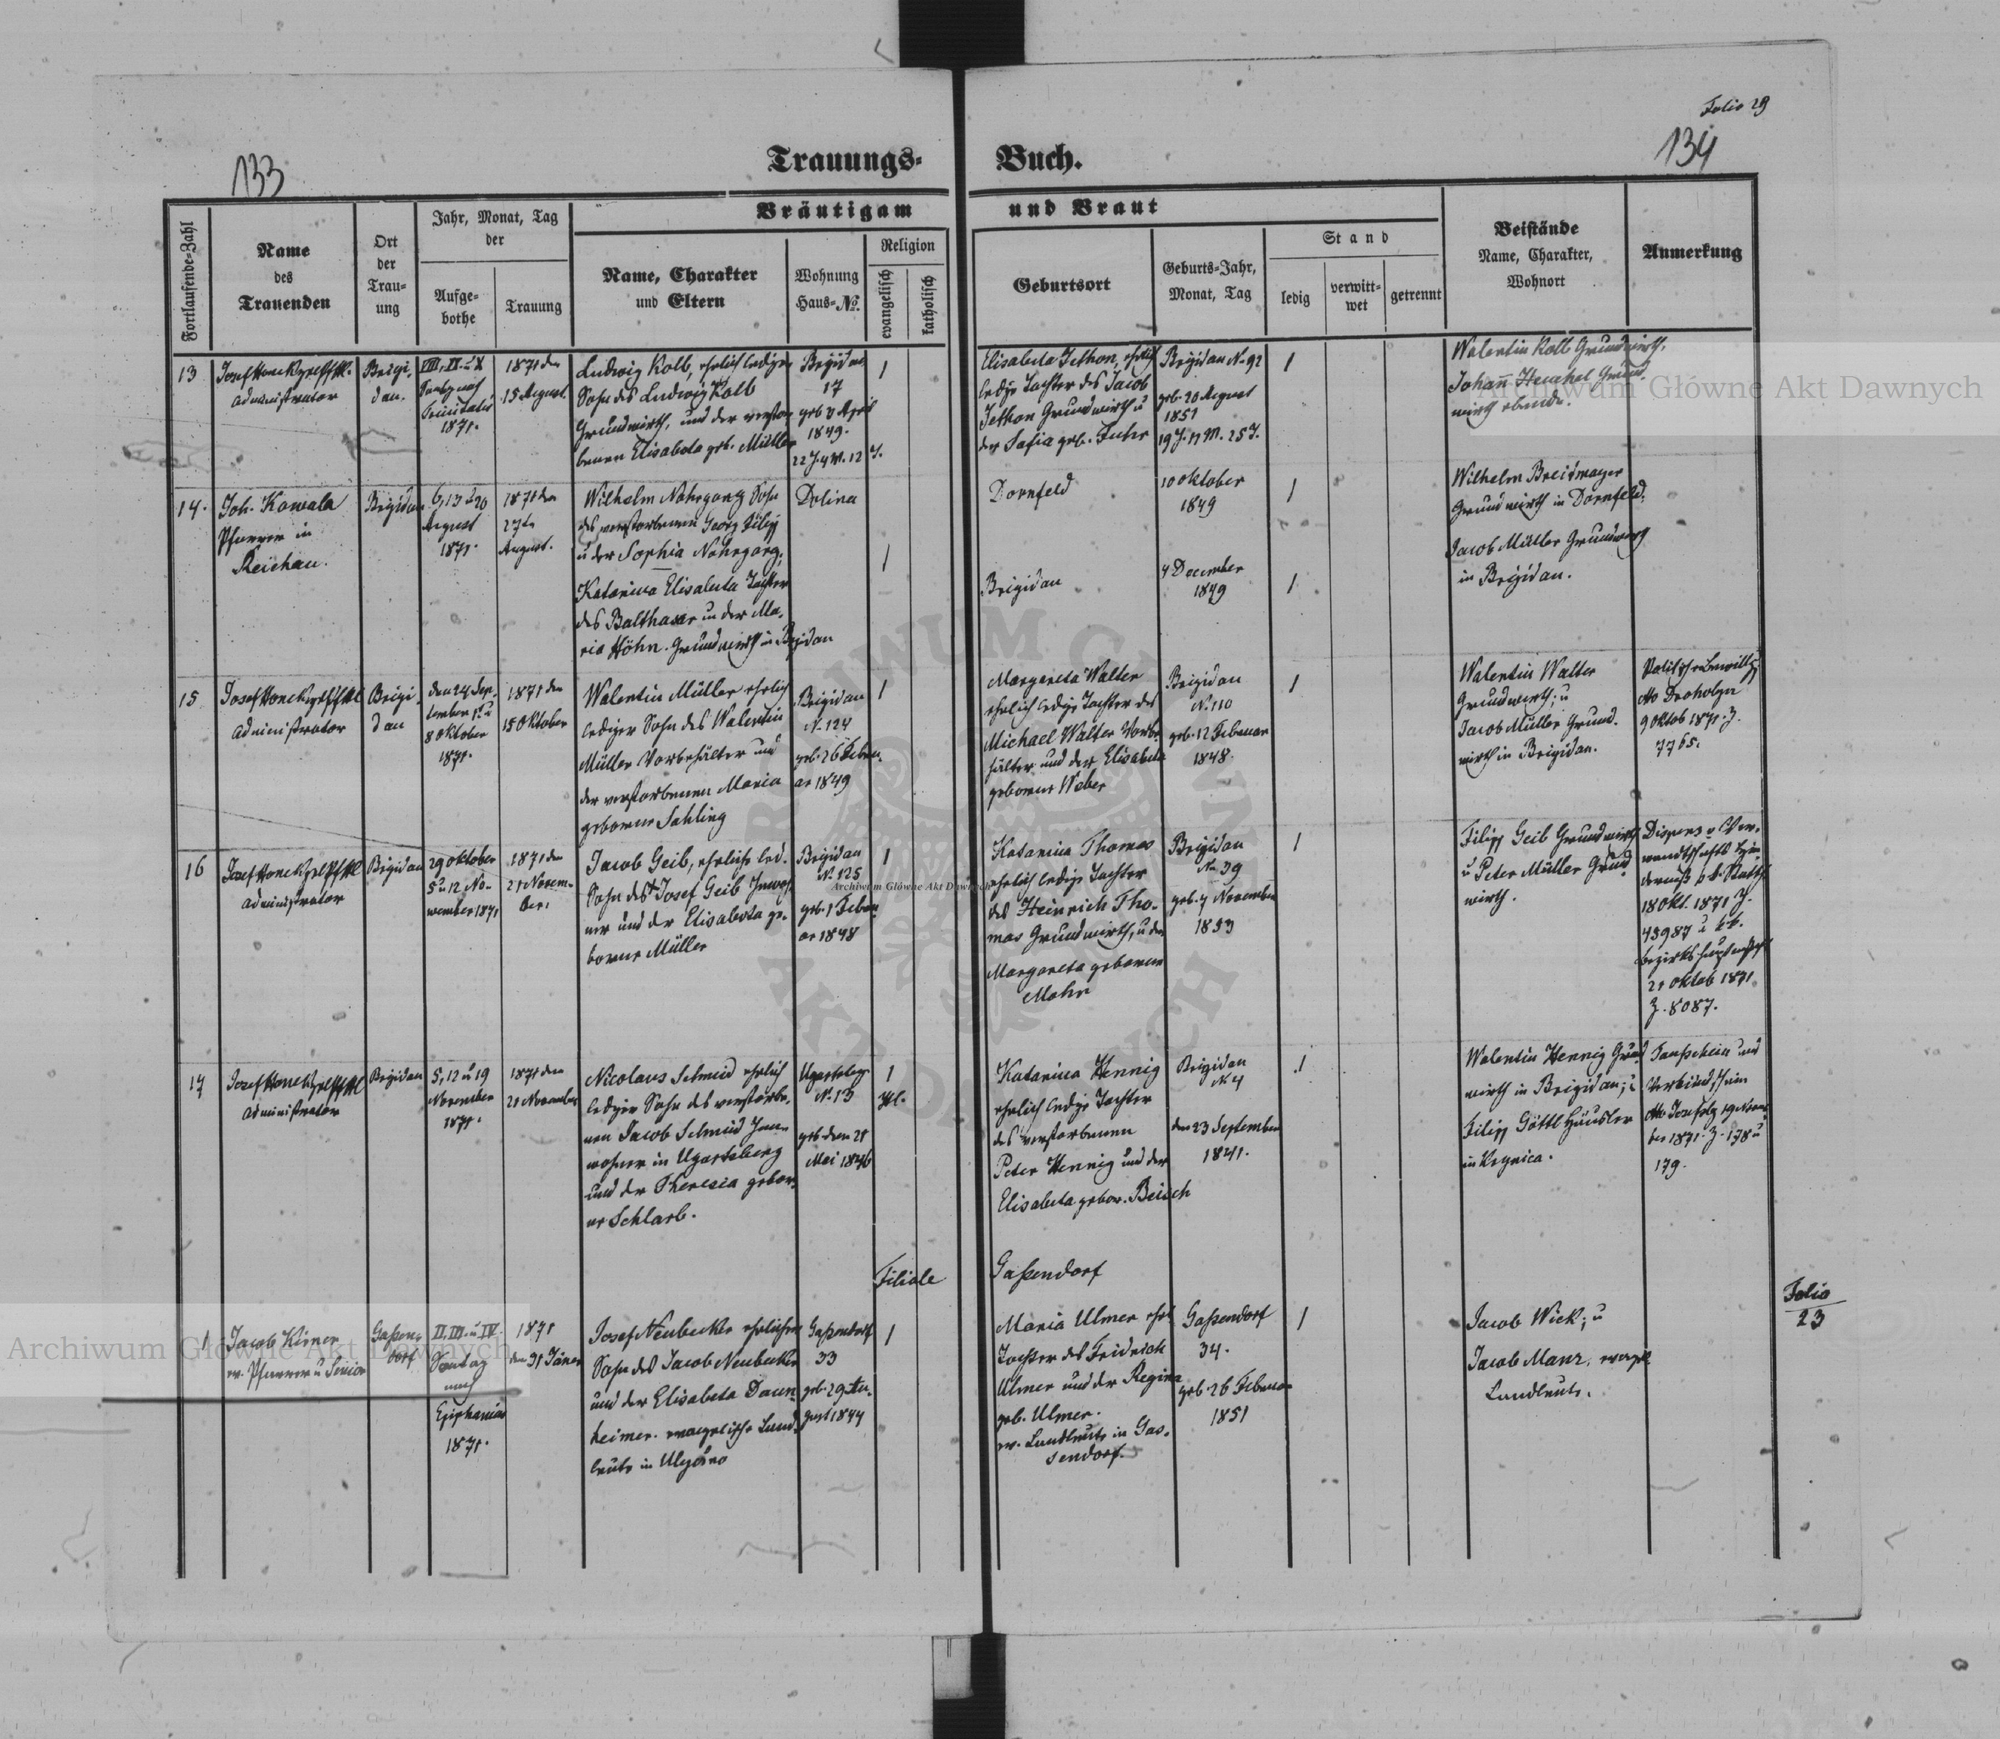 Folio 29
133
Trauungs- Buch.
134
Fortlaufende-Zahl
Name
des
Trauenden
Ort
der
Trau-
ung
Jahr, Monat, Tag
der
Aufge-
bothe
Trauung
Bräutigam und Braut
Name, Charakter
und Eltern
Wohnung
Haus-No.
Religion
evangelisch
katholisch
Geburtsort
Geburts-Jahr,
Monat, Tag
Stand
ledig
verwitt-
wet
getrennt
Beistände
Name, Charakter,
Wohnort
Anmerkung
13
Josef
Administrator
Brigi-
dau.
VIII, IX. u. X
Trinitatis
1871.
1871 den
15 August.
Ludwig Kolb, ehrlich lediger
Sohn des Ludwig Kolb
Grundwirth, und der verstor
benen Elisabeta geb. Müller
Brigidau
17
geb 3 April
1849.
22 J. 4 M. 12 T.
1
Elisabeta Jethon, ehrlich
ledige Tochter des Jacob
Jethon Grundwirth u
der Sofia geb. Fuhr
Brigidau No 92
geb. 20 August
1851
19 J. 11 M. 25 T.
1
Walentin Kolb Grundwirth,
Johañ Henchel Grund
wirth ebenda.
14.
Joh. Kowala
Pfarrer in
Reichau.
Brigidau
6, 13 u 20
August
1871.
1871 den
27ten
August.
Wilhelm Nahrgang Sohn
des verstorbenen Georg Filipp
u der Sophia Nahrgang,
Katarina Elisabeta Tochter
des Balthasar u der Ma-
ria Höhn. Grundwirth in Brigidau
Dolina
1
Dornfeld
10 oktober
1849
1
Brigidau
4 December
1849
1
Wilhelm Breitmayer
Grundwirth in Dornfeld.
Jacob Müller Grundwirth
in Brigidau.
15
Josef
Administrator
Brigi
dau
den 24 Sep-
tember 1. u
8 oktober
1871.
1871 den
15 oktober
Walentin Müller ehrlich
lediger Sohn des Walentin
Müller Vorbehälter und
der verstorbenen Maria
geborene Sahling
Brigidau
No. 124
geb. 26 Febru-
ar 1849
1
Margareta Walter
ehrlich ledige Tochter des
Michael Walter Vorbe-
hälter und der Elisabeta
geborene Weber
Brigidau
No. 110
geb. 12 Februar
1848.
1
Walentin Walter
Grundwirth; u
Jacob Müller Grund-
wirth in Brigidau.
dto Drohobyz
9 oktob 1871. Z.
7765.
16
Josef
Administrator
Brigidau
29 oktober
5 u 12 No-
wember 1871
1871 den
21 Novem-
ber.
Jacob Geib, ehrlich led.
Sohn des Josef Geib Inwoh-
ner und der Elisabeta ge-
borene Müller
Brigidau
No. 125
geb. 1 Febru
ar 1848
1
Katarina Thomas
ehrlich ledige Tochter
des Heinrich Tho-
mas Grundwirth, u der
Margareta geborene
Mohr
Brigidau
No 39
geb. 7 November
1853
1
Filipp Geib Grundwirth
u Peter Müller Grund
wirth.
Dispens v Ver-
wandtschafts Hin-
derniß
18 Okt. 1871 Z.
43987 u k.k.
Bezirkshauptmannschaft
21 oktob 1871.
Z. 8087.
17
Josef
Administrator
Brigidau
5, 12 u 19
November
1871.
1871 den
21 November
Nicolaus Schmid ehrlich
lediger Sohn des verstorbe-
nen Jacob Schmid Inn-
wohner in Ugartsberg
und der Theresia gebor-
ne Schlarb.
Ugartsberg
No. 13
geb. den 21
Mai 1846
1
Katarina Hennig
ehrlich ledige Tochter
des verstorbenen
Peter Hennig und der
Elisabeta gebor. Beisch
Brigidau
No 4
den 23 September
1841.
1
Walentin Hennig Grund
wirth in Brigidau; u
Filipp Göttl Häusler
in Krynica.
Taufschein und
Verkündschein
dto Josefsbg 19 Novem-
ber 1871. Z. 178 u
179.
Filiale Gaßendorf
1
Jacob Kirner
ev. Pfarrer u Senior
Gaßen-
dorf
II, III. u IV.
Sontag
nach
Epiphanias
1871.
1871
den 31 Jäner
Josef Neubecker ehrlicher
Sohn des Jacob Neubecker
und der Elisabeta Daun-
heimer. evangelische Land-
leute in Ulyczno
Gaßendorf
33
geb. 29 Au-
gust 1844
1
Maria Ulmer ehel
Tochter des Fridrich
Ulmer und der Regina
geb. Ulmer.
ev. Landleute in Gas-
sendorf.
Gaßendorf
34.
geb. 26 Februar
1851
1
Jacob Wick; u
Jacob Manz, evangel.
Landleute.
Folio
23
Archiwum Główne Akt Dawnych
Archiwum Główne Akt Dawnych
Archiwum Główne Akt Dawnych